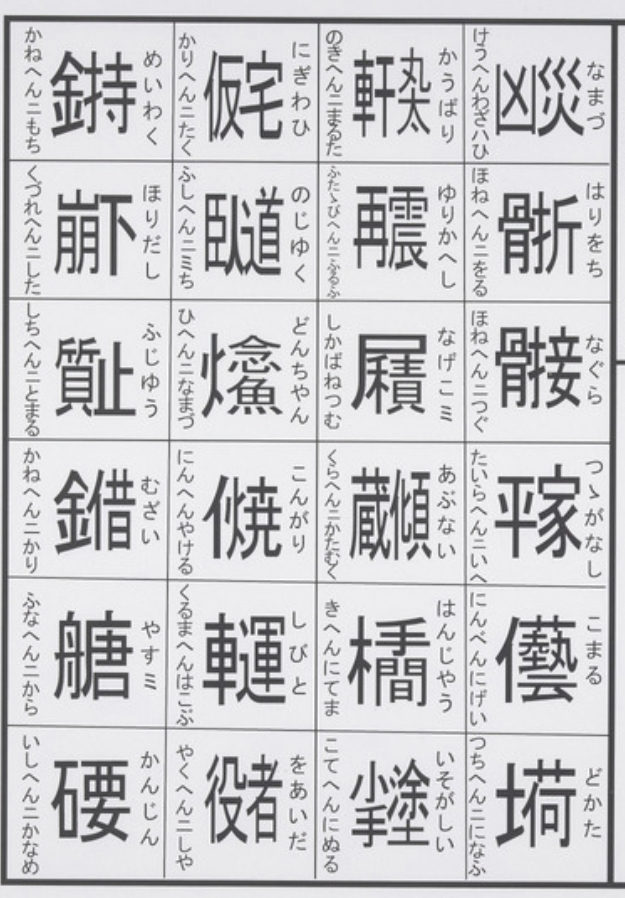 なまづ
凶災
けうへんわざハひ
かうばり
軒丸太
のきへんニまるた
にぎわひ
仮宅
かりへんニたく
めいわく
金持
かねへんニもち
はりをち
骨折
ほねへんニをる
ゆりかへし
再震
ふたゝびへんニふるふ
のじゆく
臥道
ふしへんニミち
ほりだし
崩下
くづれへんニした
なぐら
骨接
ほねへんニつぐ
なげこミ
尸積
しかばねつむ
どんちやん
火鯰
ひへんニなまづ
ふじゆう
質止
しちへんニとまる
つゝがなし
平家
たいらへんニいへ
あぶない
蔵傾
くらへんニかたむく
こんがり
亻焼
にんへんやける
むざい
金借
かねへんニかり
こまる
亻藝
にんべんにげい
はんじやう
木手間
きへんにてま
しびと
車運
くるまへんはこぶ
やすミ
舟唐
ふなへんニから
どかた
土荷
つちへんニになふ
いそがしい
小手塗
こてへんにぬる
をあいだ
役者
やくへんニしや
かんじん
石要
いしへんニかなめ